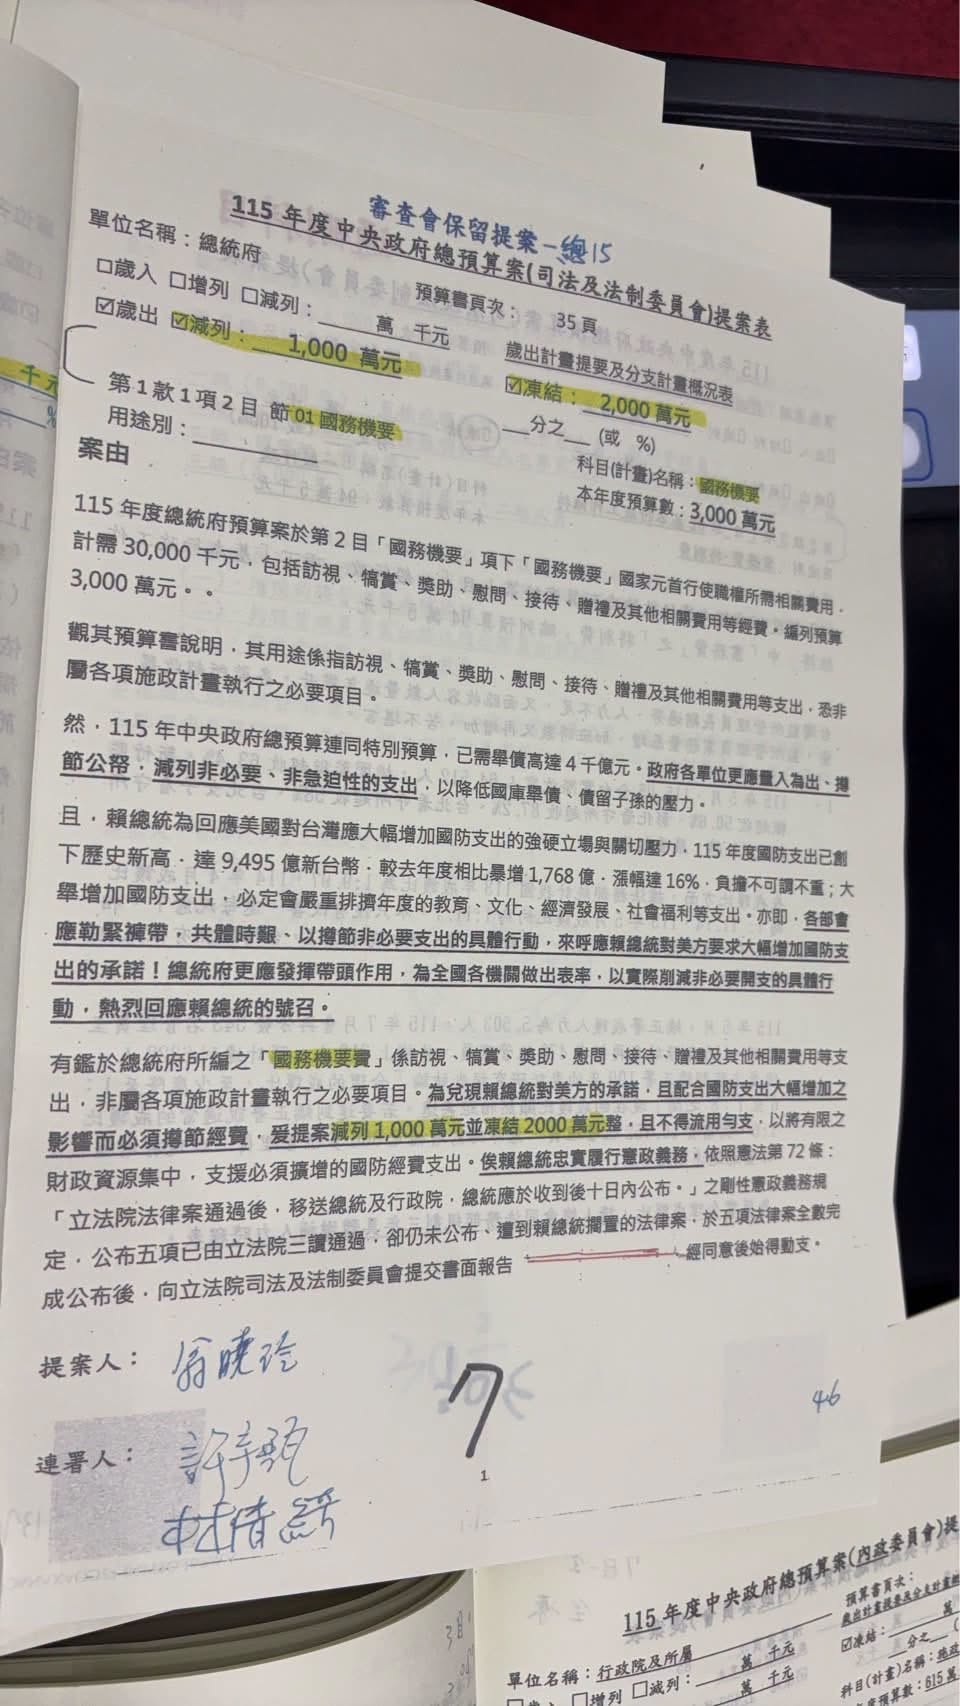 審查會保留提案－總15
115年度中央政府總預算案(司法及法制委員會)提案表
單位名稱：總統府
預算書頁次： 35頁
□歲入 □增列 □減列：____萬 千元
歲出計畫提要及分支計畫概況表
☑歲出 ☑減列：1,000 萬元
☑凍結：2,000 萬元
__分之__ (或 %)
第1款1項2目 節01國務機要
科目(計畫)名稱：國務機要
用途別：________
本年度預算數：3,000萬元
案由
115年度總統府預算案於第2目「國務機要」項下「國務機要」國家元首行使職權所需相關費用，
計需30,000千元，包括訪視、犒賞、獎助、慰問、接待、贈禮及其他相關費用等經費。編列預算
3,000萬元。。
觀其預算書說明，其用途係指訪視、犒賞、獎助、慰問、接待、贈禮及其他相關費用等支出，恐非
屬各項施政計畫執行之必要項目。
然，115年中央政府總預算連同特別預算，已需舉債高達4千億元。政府各單位更應量入為出、撙
節公帑，減列非必要、非急迫性的支出，以降低國庫舉債、債留子孫的壓力。
且，賴總統為回應美國對台灣應大幅增加國防支出的強硬立場與關切壓力，115年度國防支出已創
下歷史新高，達9,495億新台幣，較去年度相比暴增1,768億，漲幅達16%，負擔不可謂不重；大
舉增加國防支出，必定會嚴重排擠年度的教育、文化、經濟發展、社會福利等支出。亦即，各部會
應勒緊褲帶，共體時艱、以撙節非必要支出的具體行動，來呼應賴總統對美方要求大幅增加國防支
出的承諾！總統府更應發揮帶頭作用，為全國各機關做出表率，以實際削減非必要開支的具體行
動，熱烈回應賴總統的號召。
有鑑於總統府所編之「國務機要費」係訪視、犒賞、獎助、慰問、接待、贈禮及其他相關費用等支
出，非屬各項施政計畫執行之必要項目。為兌現賴總統對美方的承諾，且配合國防支出大幅增加之
影響而必須撙節經費，爰提案減列1,000萬元並凍結2000萬元整，且不得流用勻支，以將有限之
財政資源集中，支援必須擴增的國防經費支出。俟賴總統忠實履行憲政義務，依照憲法第72條：
「立法院法律案通過後，移送總統及行政院，總統應於收到後十日內公布。」之剛性憲政義務規
定，公布五項已由立法院三讀通過，卻仍未公布、遭到賴總統擱置的法律案，於五項法律案全數完
成公布後，向立法院司法及法制委員會提交書面報告 經同意後始得動支。
提案人：翁曉玲
7
46
連署人：許宇甄
林倩綺
1
115年度中央政府總預算案(內政委員會)提
預算書頁次：
單位名稱：行政院及所屬
□增列 □減列：____萬 千元
萬 千元
☑凍結：
__分之__
科目(計畫)名稱：施政
預算數：615萬